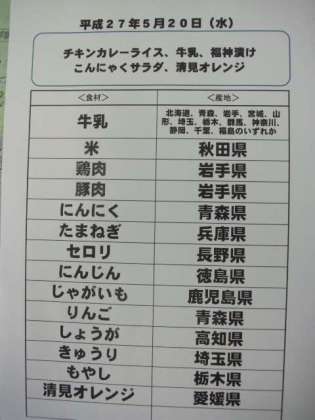 平成27年5月20日（水）
チキンカレーライス、牛乳、福神漬け
こんにゃくサラダ、清見オレンジ
＜食材＞ ＜産地＞
牛乳 北海道、青森、岩手、宮城、山
形、埼玉、栃木、群馬、神奈川、
静岡、千葉、福島のいずれか
米 秋田県
鶏肉 岩手県
豚肉 岩手県
にんにく 青森県
たまねぎ 兵庫県
セロリ 長野県
にんじん 徳島県
じゃがいも 鹿児島県
りんご 青森県
しょうが 高知県
きゅうり 埼玉県
もやし 栃木県
清見オレンジ 愛媛県